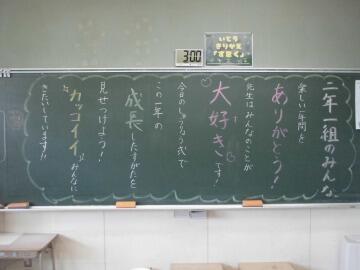 3:00
二年一組のみんな、
楽しい一年間を
ありがとう!
先生はみんなのことが
大好きです!
今日のしゅうりょう式で
この一年の
成長したすがたを
見せつけよう!
カッコイイみんなに
きたいしています!!